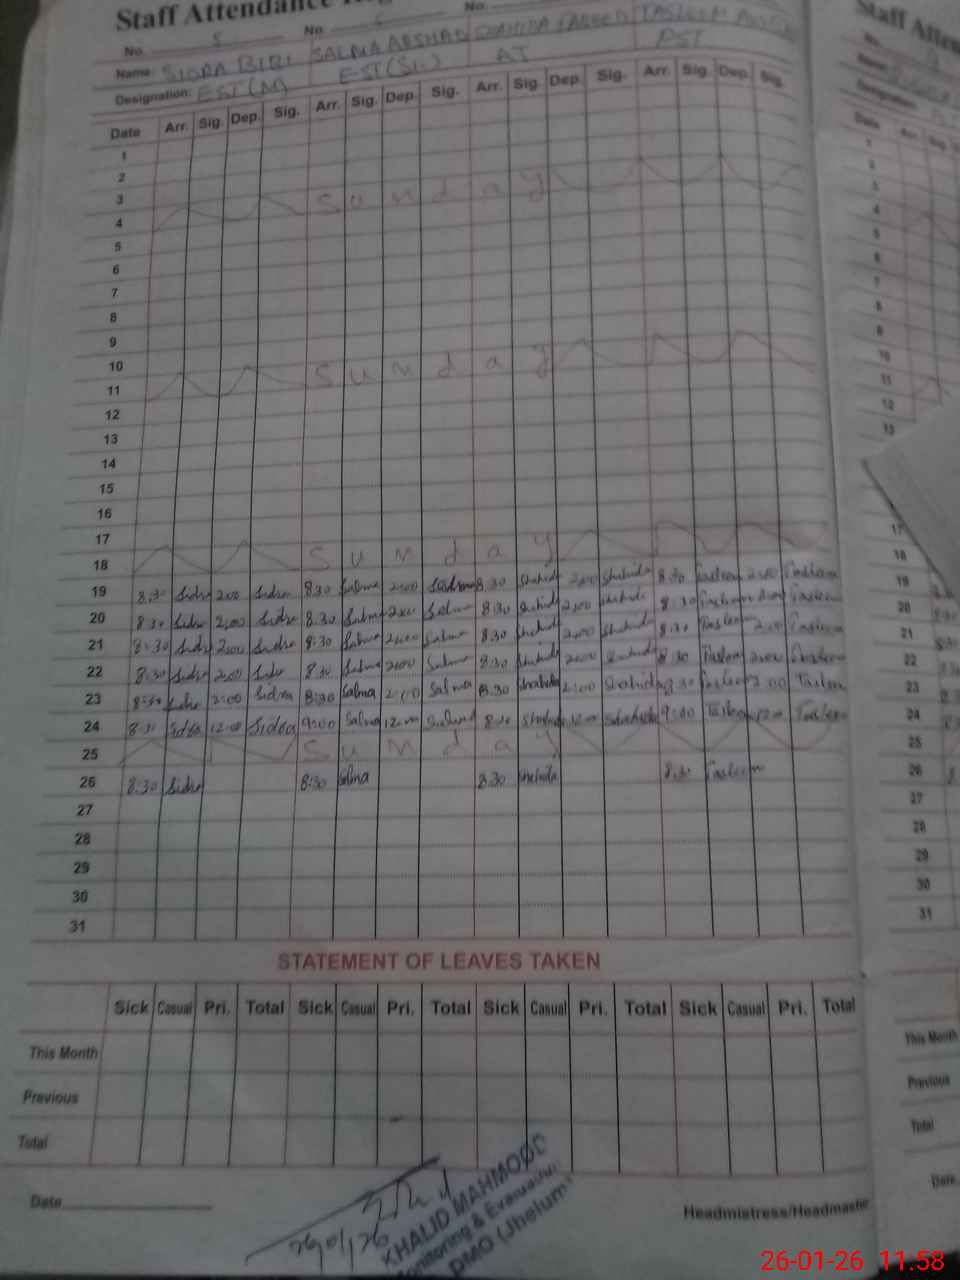 Staff Attendance
No. 5 No. 6 No.
Name: SIDRA BIBI SALMA ARSHAD SHAHIDA TASLEEM
Designation: EST (M) EST (Sc) AT PST
Date Arr. Sig. Dep. Sig. Arr. Sig. Dep. Sig. Arr. Sig. Dep. Sig. Arr. Sig. Dep. Sig.
1
2
3
4 Sunday
5
6
7
8
9
10
11 Sunday
12
13
14
15
16
17
18 Sunday
19 8:30 Sidra 2:00 Sidra 8:30 Salma 2:00 Salma 8:30 Shahida 2:00 Shahida 8:30 Tasleem 2:00 Tasleem
20 8:30 Sidra 2:00 Sidra 8:30 Salma 2:00 Salma 8:30 Shahida 2:00 Shahida 8:30 Tasleem 2:00 Tasleem
21 8:30 Sidra 2:00 Sidra 8:30 Salma 2:00 Salma 8:30 Shahida 2:00 Shahida 8:30 Tasleem 2:00 Tasleem
22 8:30 Sidra 2:00 Sidra 8:30 Salma 2:00 Salma 8:30 Shahida 2:00 Shahida 8:30 Tasleem 2:00 Tasleem
23 8:30 Sidra 2:00 Sidra 8:30 Salma 2:00 Salma 8:30 Shahida 2:00 Shahida 8:30 Tasleem 2:00 Tasleem
24 8:30 Sidra 12:00 Sidra 9:00 Salma 12:00 Salma 8:30 Shahida 12:00 Shahida 9:00 Tasleem 12:00 Tasleem
25 Sunday
26 8:30 Sidra 8:30 Salma 8:30 Shahida 8:30 Tasleem
27
28
29
30
31
STATEMENT OF LEAVES TAKEN
Sick Casual Pri. Total Sick Casual Pri. Total Sick Casual Pri. Total Sick Casual Pri. Total
This Month
Previous
Total
Date
Headmistress/Headmaster
26/01/26
KHALID MAHMOOD
Monitoring & Evaluation
DMO (Jhelum)
Staff Atten
No.
Name
Designation
Date Arr.
4
5
6
7
8
9
10
11
12
13
17
18
19
20
21
22
23
24
25
26
27
28
29
30
31
This Month
Previous
Total
Date
26-01-26 11:58